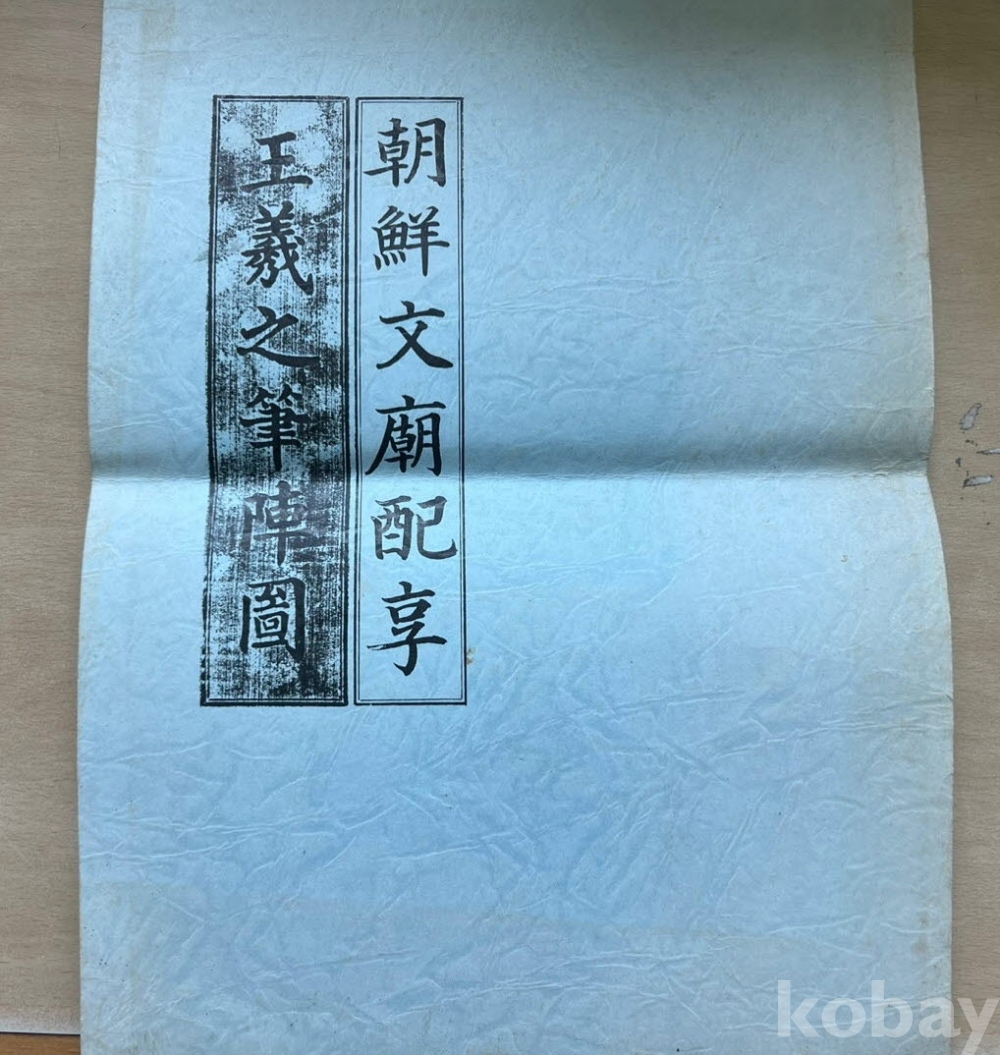 朝鮮文廟配享
王羲之筆陣圖
kobay